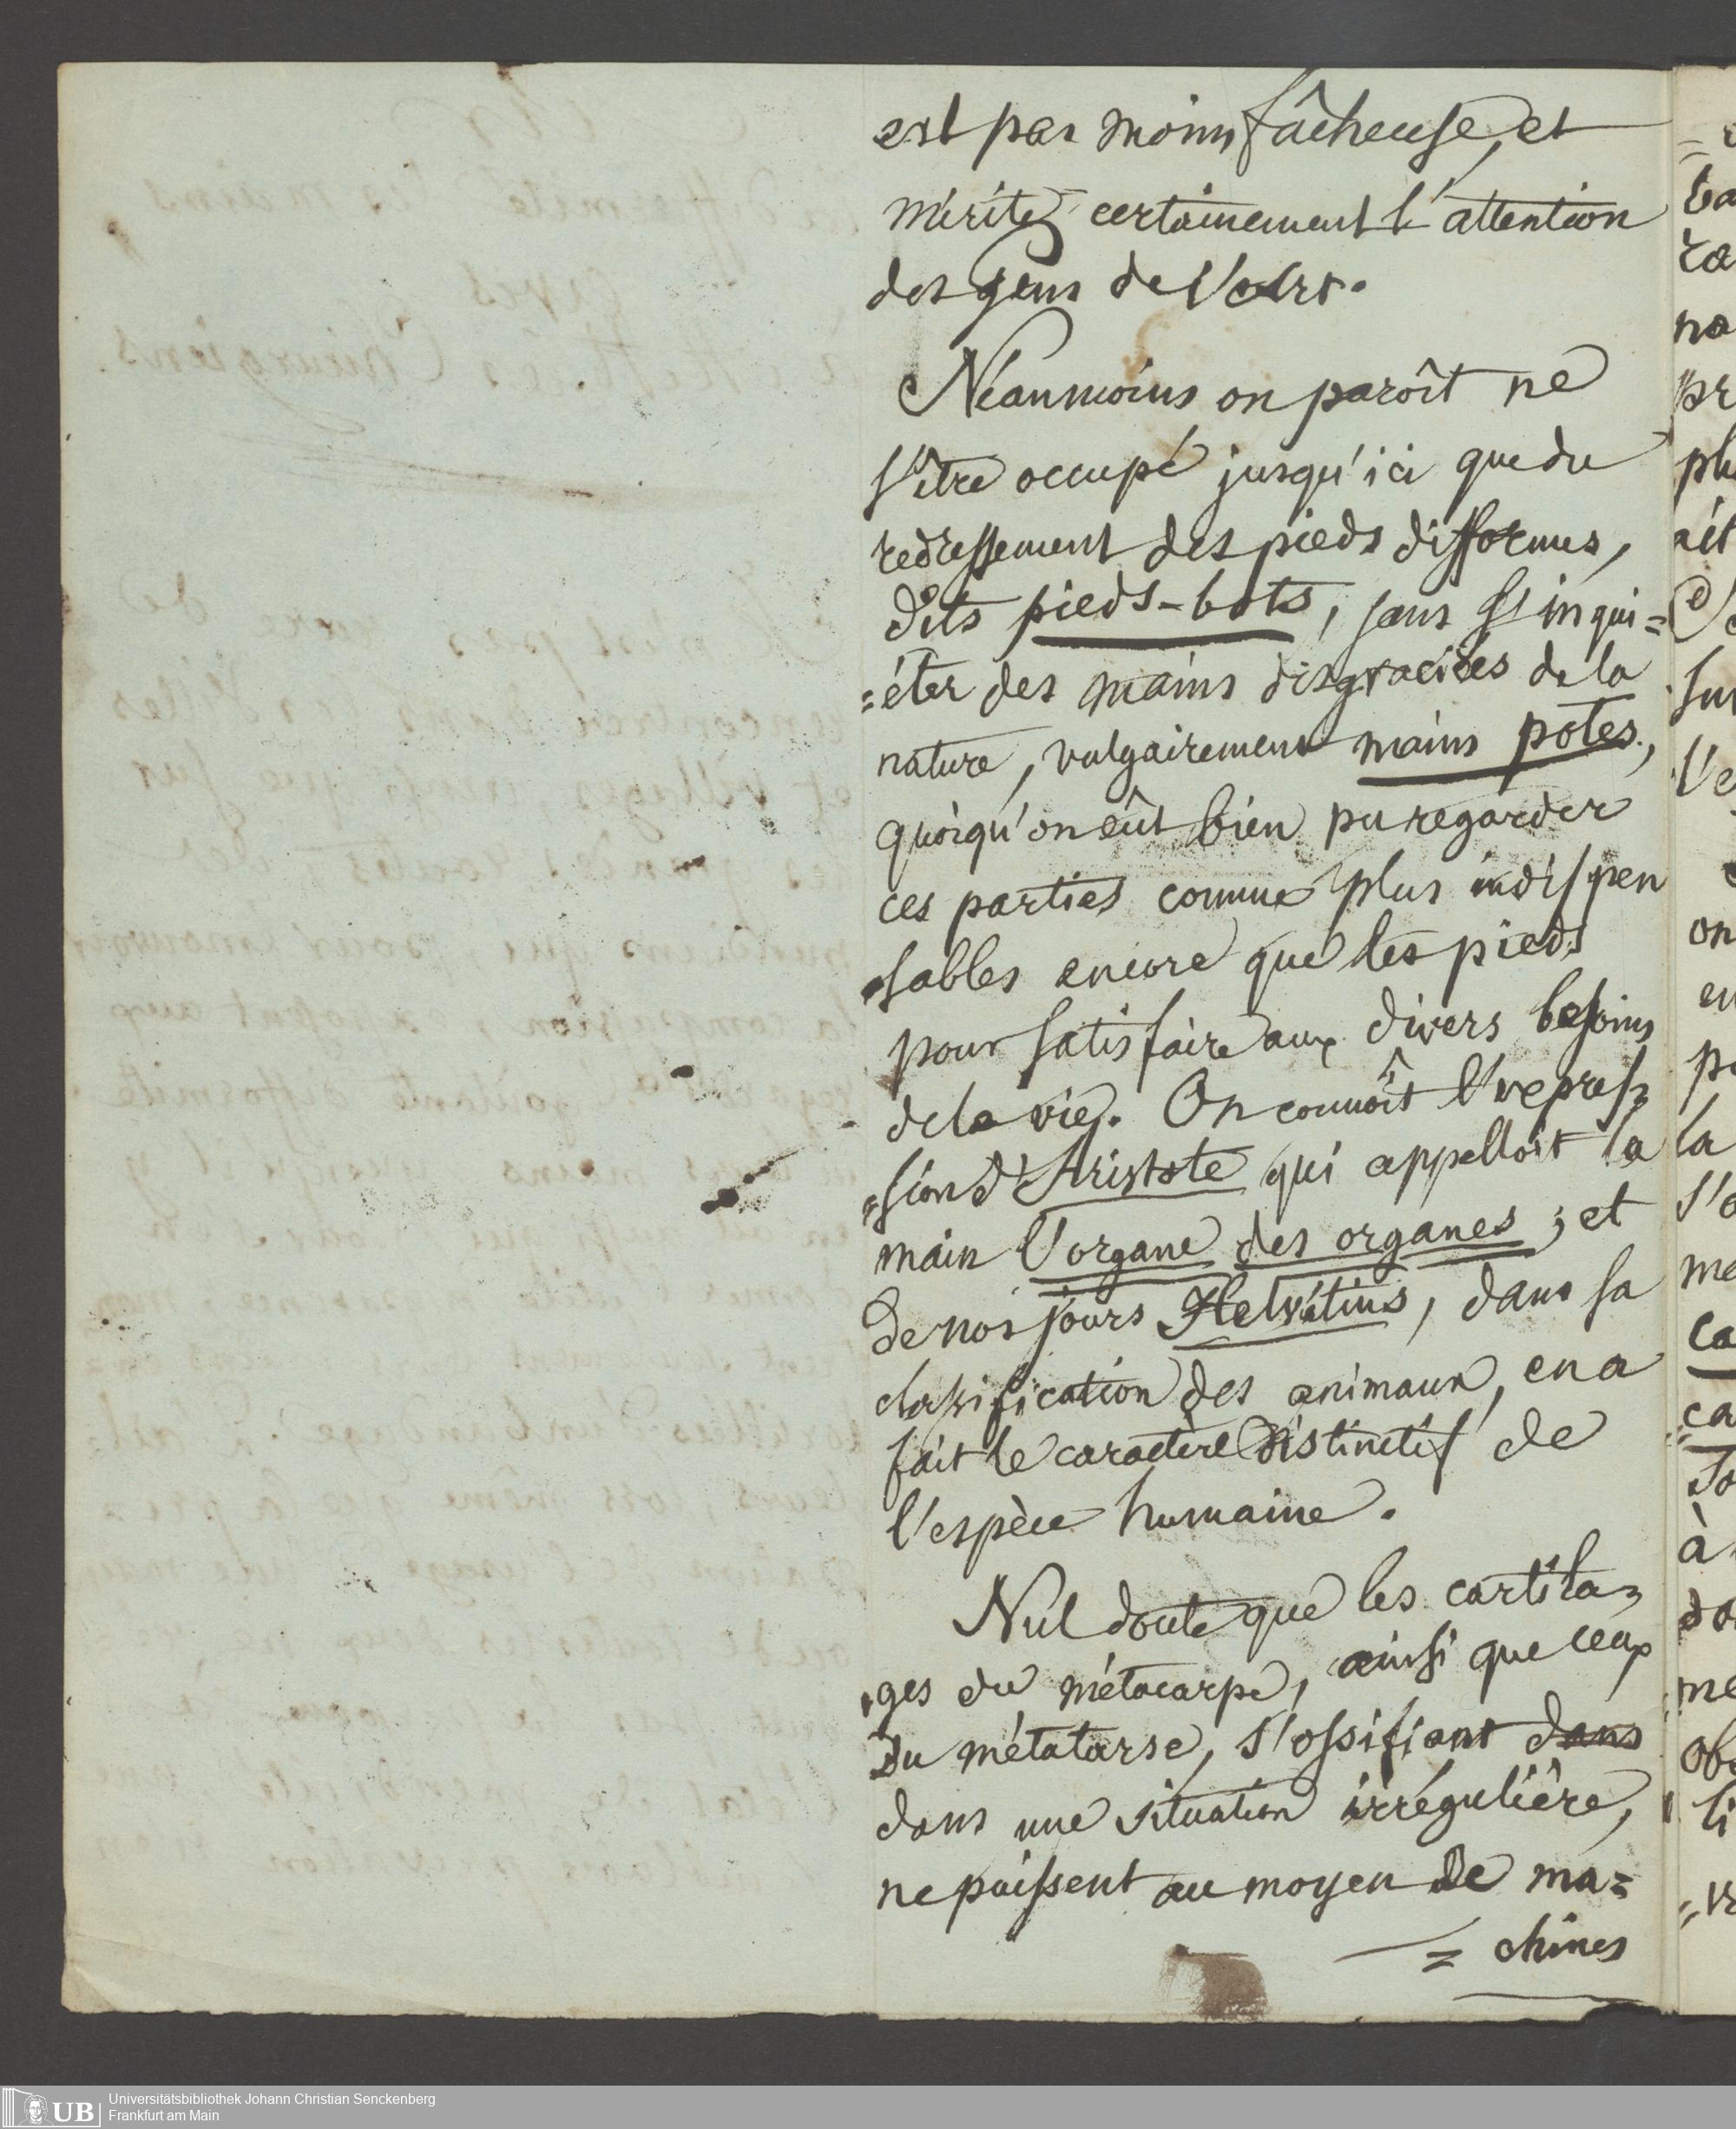 est pas moins fâcheuse, et
mérite certainement l'attention
des gens de l'Art.
Néanmoins on paroît ne
s'être occupé jusqu'ici que du
redressement des pieds difformes,
dits pieds-bots, sans s'inqui=
=éter des mains disgraciées de la
nature, vulgairement mains potes,
quoiqu'on eût bien pu regarder
ces parties comme plus indispen
=sables encore que les pieds
pour satisfaire aux divers besoins
de la vie. On connoît l'expres=
=sion d'Aristote qui appelloit la
main l'organe des organes; et
de nos jours Helvétius, dans sa
classification des animaux, en a
fait le caractère distinctif de
l'espèce humaine.
Nul doute que les cartila=
=ges du métacarpe, ainsi que ceux
du métatarse, s'ossifiant dans
dans une situation irrégulière,
ne puissent au moyen de ma=
= chines
UB
Universitätsbibliothek Johann Christian Senckenberg
Frankfurt am Main